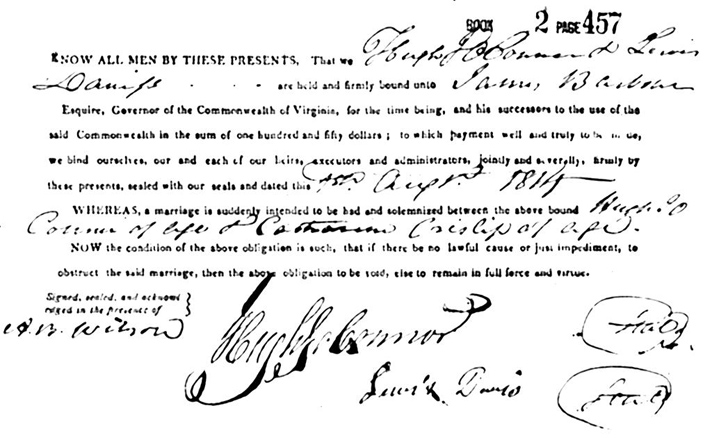 BOOK 2 PAGE 457
KNOW ALL MEN BY THESE PRESENTS, That we Hugh O Connor & Lewis
Davis - - - are held and firmly bound unto James Barbour
Esquire, Governor of the Commonwealth of Virginia, for the time being, and his successors to the use of the
said Commonwealth in the sum of one hundred and fifty dollars; to which payment well and truly to be made,
we bind ourselves, our and each of our heirs, executors and administrators, jointly and severally, firmly by
these presents, sealed with our seals and dated this Augt. 1814
WHEREAS, a marriage is suddenly intended to be had and solemnized between the above bound Hugh O
Connor of age & Catharine Crislip of age.
NOW the condition of the above obligation is such, that if there be no lawful cause or just impediment, to
obstruct the said marriage, then the above obligation to be void, else to remain in full force and virtue.
Signed, sealed, and acknowl
edged in the presence of
A. B. Wilson
Hugh O Connor Seal
Lewis Davis Seal